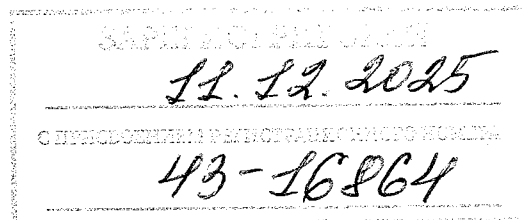 ЗАРЕГИСТРИРОВАН
11.12.2025
С ПРИСВОЕНИЕМ РЕГИСТРАЦИОННОГО НОМЕРА
43-16864